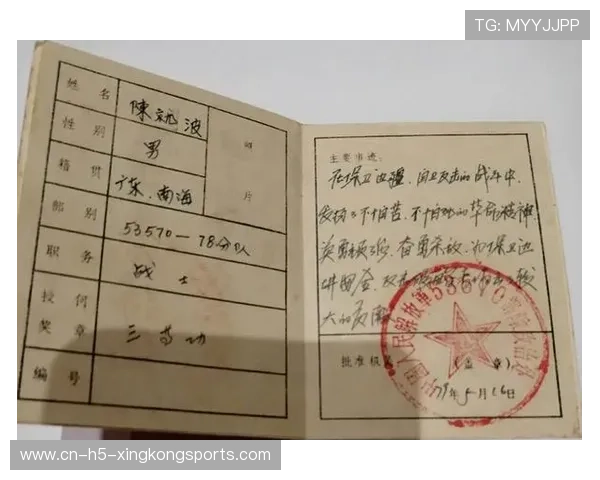 TG: MYYJJPP
姓名 陳 波
性别 男
照
片
籍贯 广东.南海
部别 53570—78分队
职务 战士
授何奖章 三等功
编号
主要事迹:
在保卫边疆、自卫反击的战斗中
发扬了不怕苦、不怕死的革命精神
英勇顽强、奋勇杀敌、为保卫边
大的贡献
批准机关 (盖章)
79年5月16日
中国人民解放军53570部队
www-cn-h5-xingkongsports.com